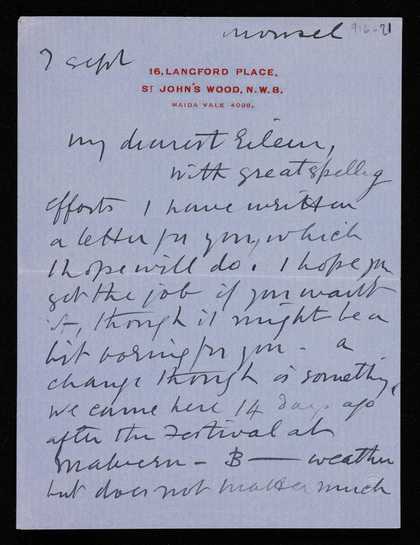 Mousel
916.71
7 Sept
16, LANGFORD PLACE,
ST JOHN'S WOOD, N.W.8.
MAIDA VALE 4098.
My dearest Eileen,
with great spelling
efforts I have written
a letter for you, which
I hope will do. I hope you
get the job if you want
it, though it might be a
bit boring for you - a
change though is something,
we came here 14 days ago
after the Festival at
Malvern - B — weather
but does not matter much